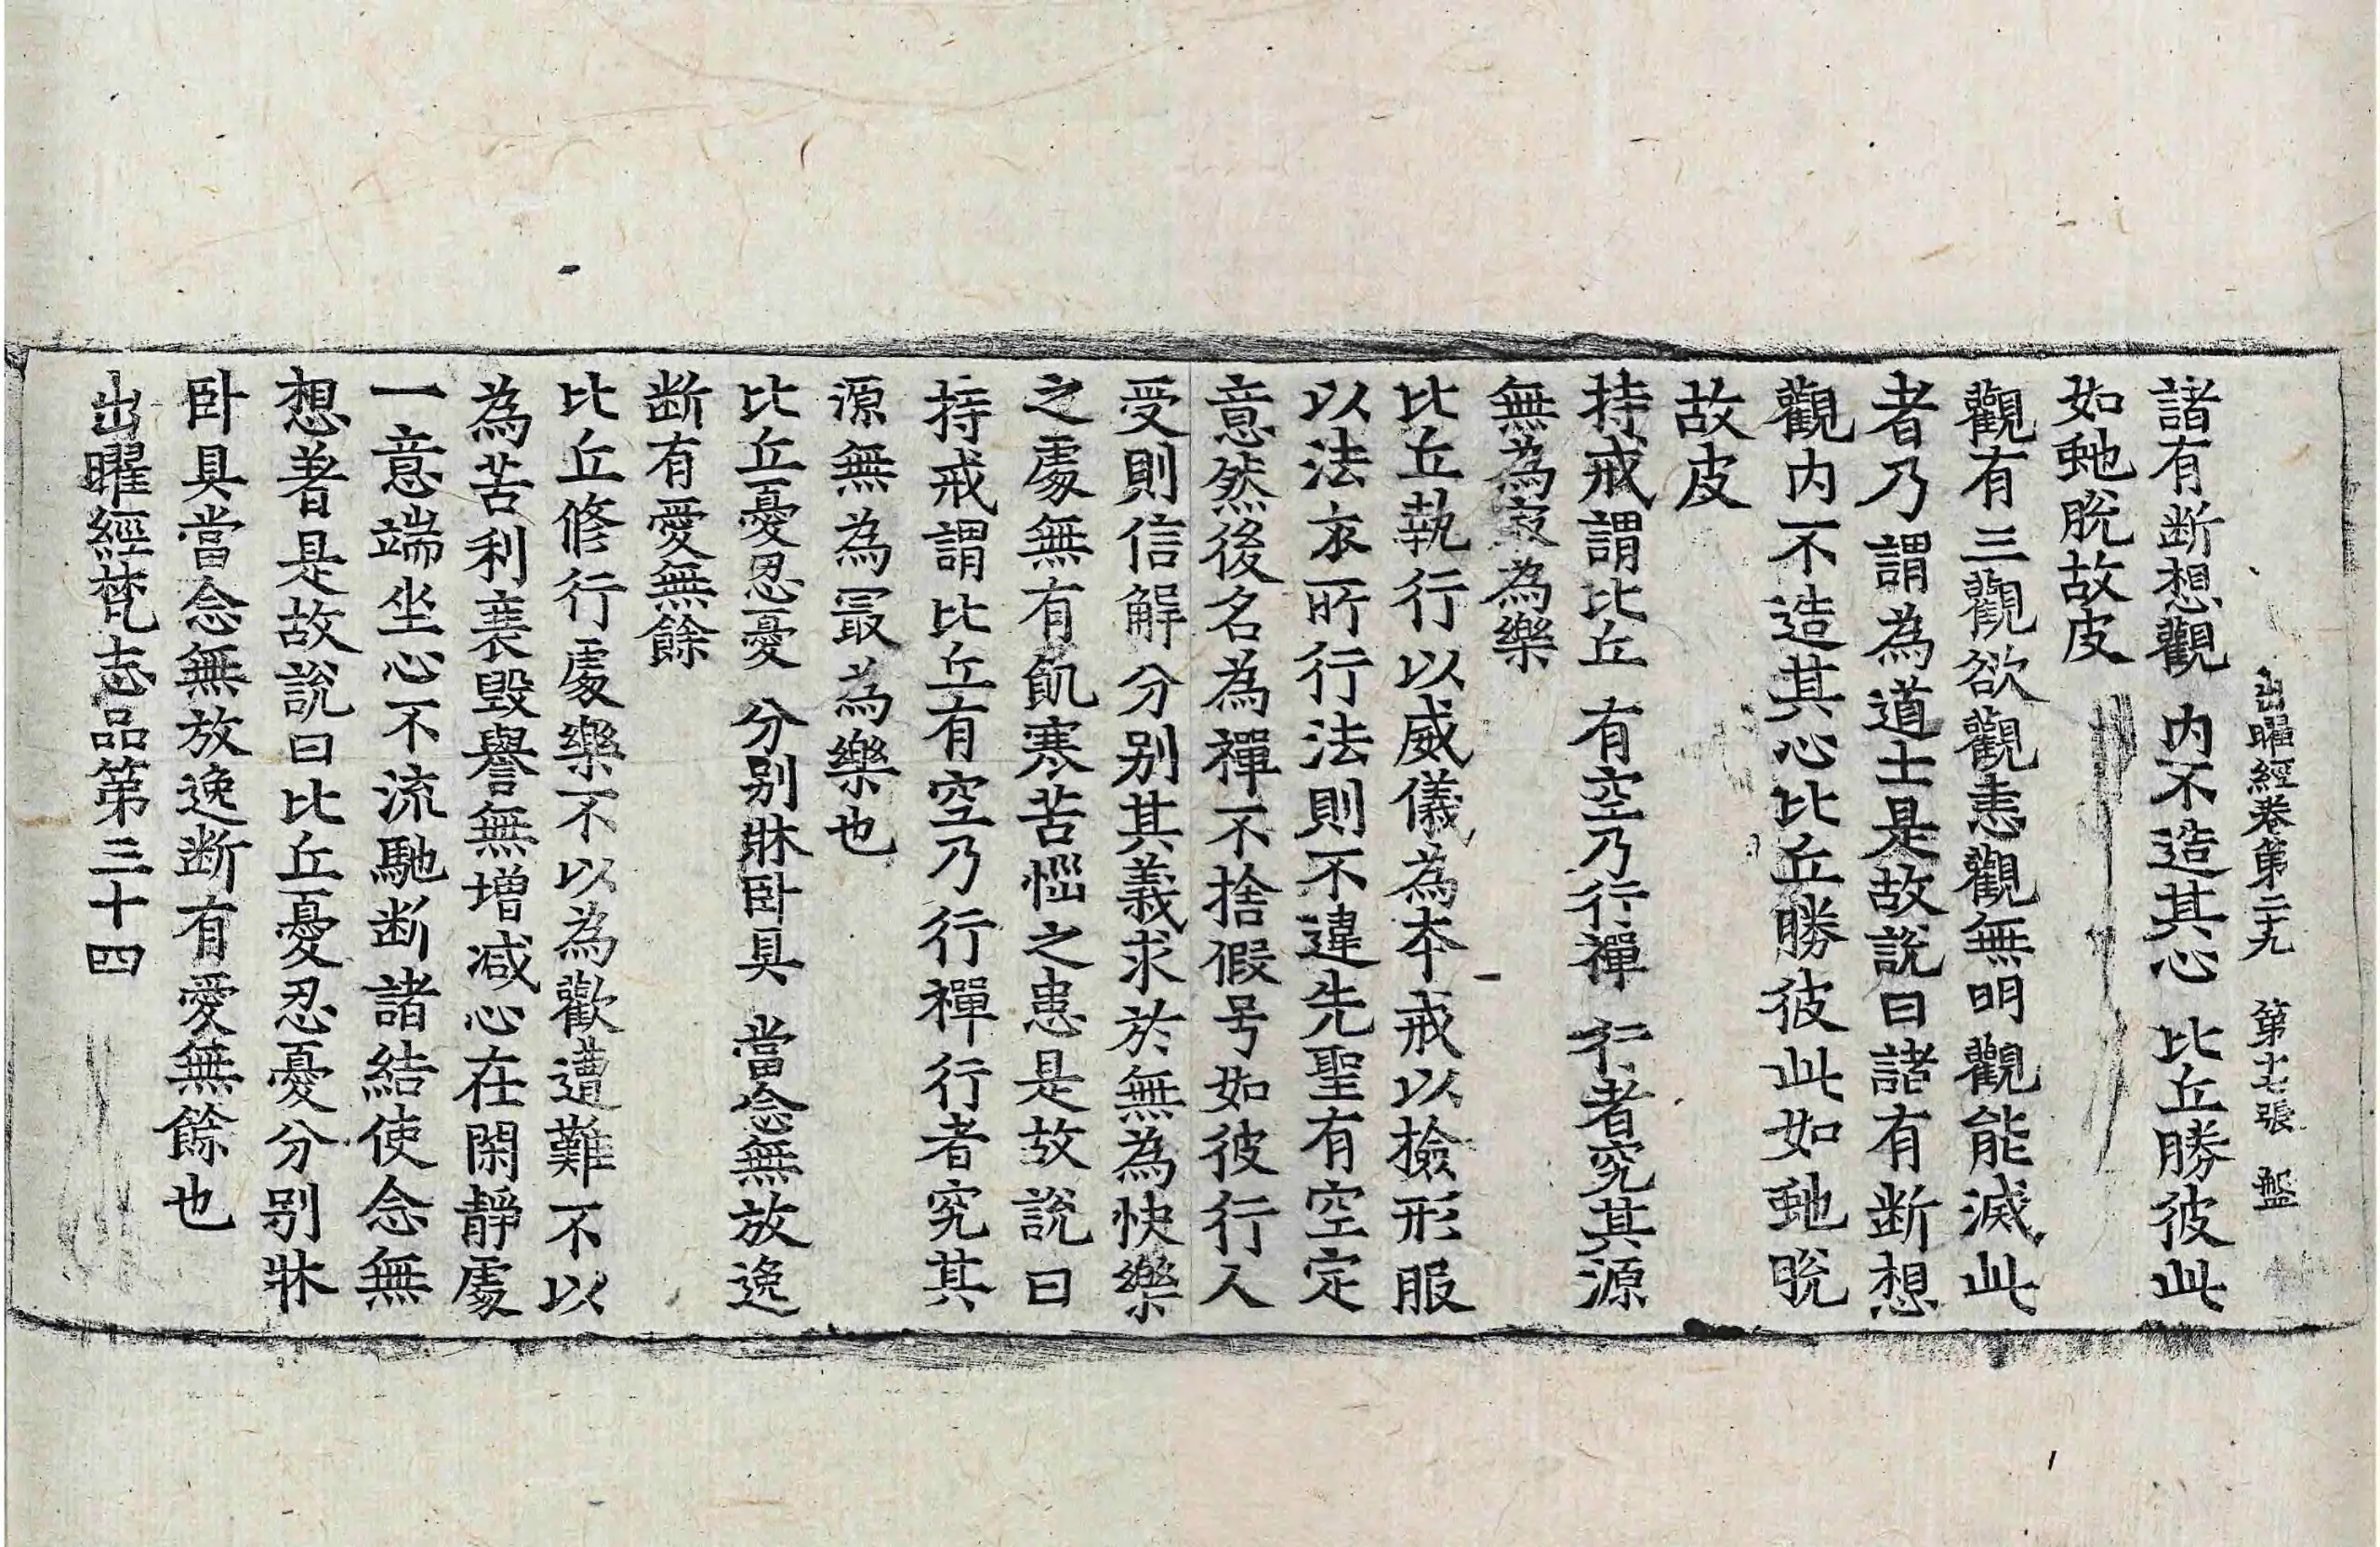 出曜經卷第二十九 第十七張 盤
諸有断想觀 内不造其心 比丘勝彼此
如虵脫故皮
觀有三觀欲觀恚觀無明觀能滅此
者乃謂為道士是故說曰諸有断想
觀内不造其心比丘勝彼此如虵脫
故皮
持戒謂比丘 有空乃行禪 行者究其源
無為寂為樂
比丘執行以威儀為本戒以撿形服
以法衣所行法則不違先聖有空定
意然後名為禪不捨假号如彼行人
受則信解分别其義求於無為快樂
之處無有飢寒苦惱之患是故說曰
持戒謂比丘有空乃行禪行者究其
源無為冣為樂也
比丘憂忍憂 分别牀卧具 當念無放逸
断有愛無餘
比丘修行處樂不以為歡遭難不以
為苦利衰毀譽無增减心在閑靜處
一意端坐心不流馳断諸結使念無
想著是故說曰比丘憂忍憂分别牀
卧具當念無放逸断有愛無餘也
出曜經梵志品第三十四